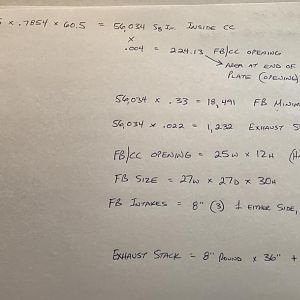 × .7854 × 60.5 = 56,034 SQ IN. INSIDE CC
×
.004 = 224.13 FB/CC OPENING
AREA AT END OF
PLATE (OPENING)
56,034 × .33 = 18,491 FB MINIM
56,034 × .022 = 1,232 EXHAUST S
FB/CC OPENING = 25W × 12H
FB SIZE = 27W × 27D × 30H
FB INTAKES = 8" (3) 1 EITHER SIDE,
EXHAUST STACK = 8" ROUND × 36" +